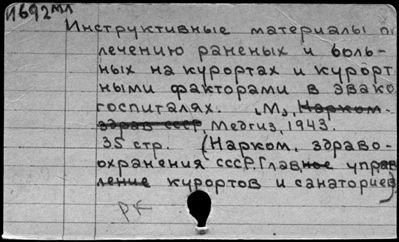 И692мл
Инструктивные материалы по
лечению раненых и боль-
ных на курортах и курорт
ными факторами в эвако
госпиталях. М., Нарком-
здрав СССР, Медгиз, 1943.
35 стр. (Нарком. здраво-
охранения СССР. Главное управ
ление курортов и санаториев)
РК